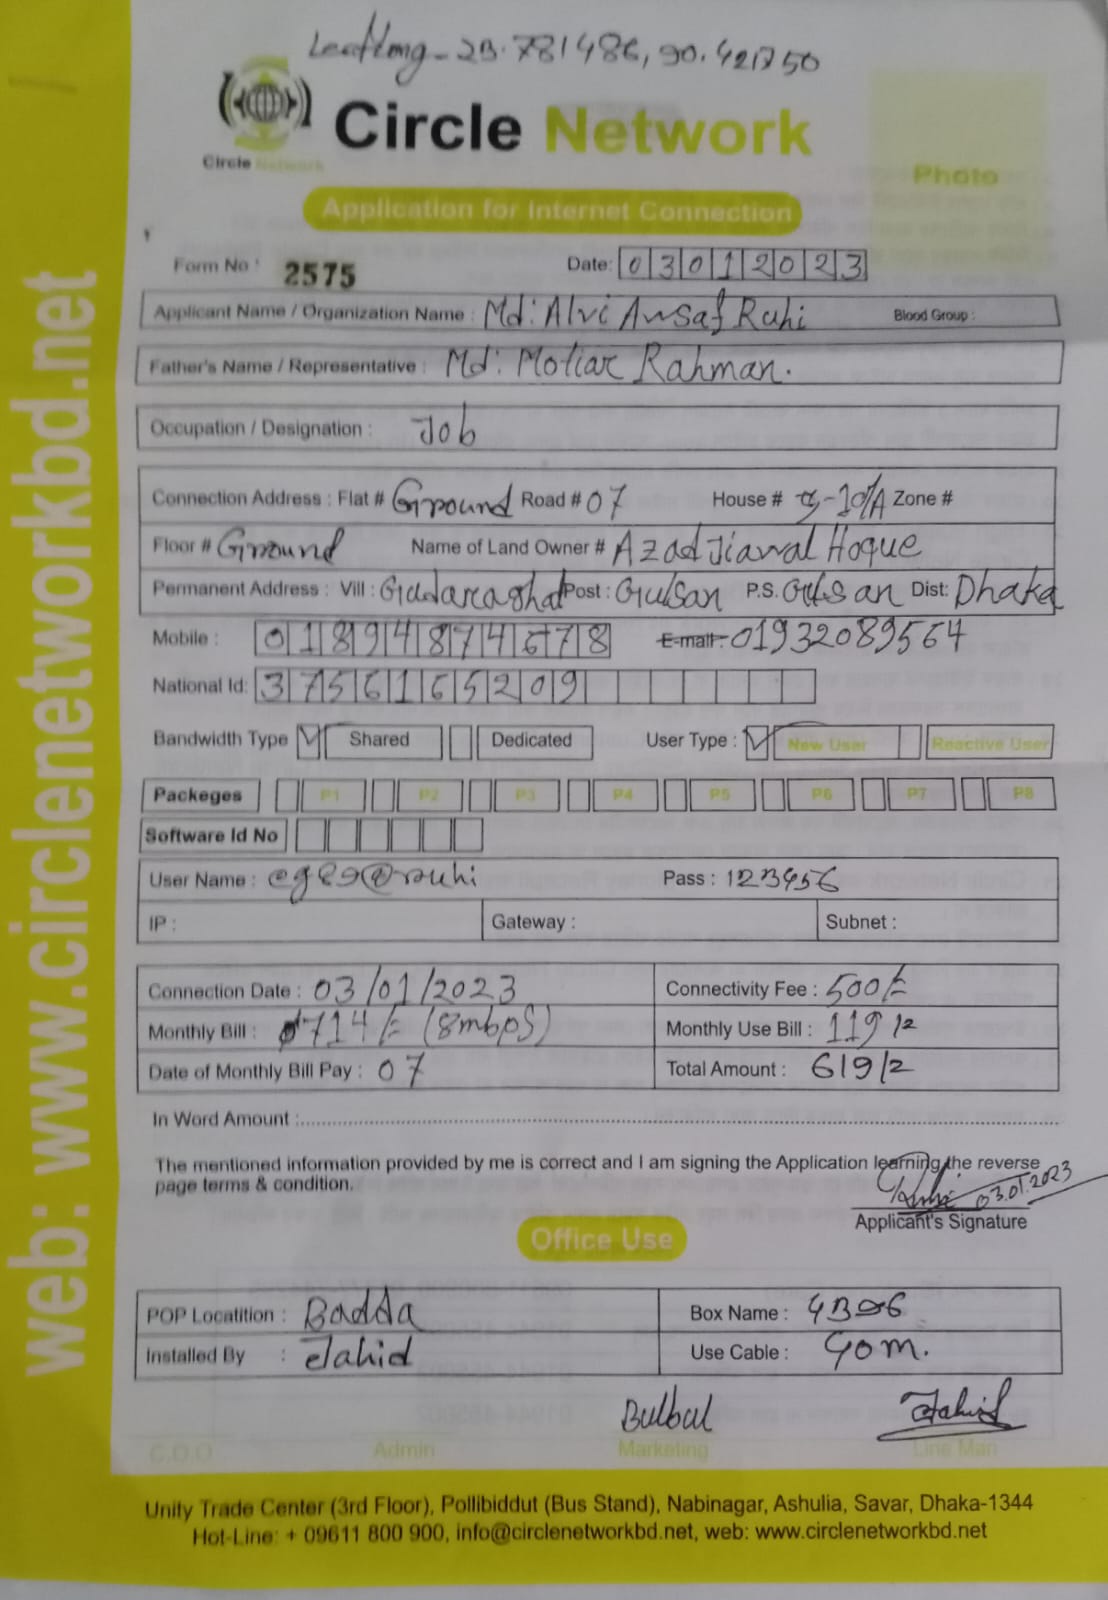 23.781486, 90.421750
Circle Network
Circle Network
Photo
Application for Internet Connection
Form No : 2575 Date: 03012023
Applicant Name / Organization Name : Md: Alvi Ansaf Ruhi Blood Group :
Father's Name / Representative : Md: Motiar Rahman.
Occupation / Designation : Job
Connection Address : Flat # Ground Road # 07 House # Zone #
Floor # Ground Name of Land Owner # Azad Jiawal Hoque
Permanent Address : Vill : Gudaraghat Post : Gulsan P.S. Gulsan Dist: Dhaka
Mobile : 01894874678 E-mail: 01932089564
National Id: 3756165209
Bandwidth Type Shared Dedicated User Type : New User Reactive User
Packeges P1 P2 P3 P4 P5 P6 P7 P8
Software Id No
User Name : eg89@ruhi Pass : 123456
IP : Gateway : Subnet :
Connection Date : 03/01/2023 Connectivity Fee : 500/=
Monthly Bill : 714/= (8mbps) Monthly Use Bill : 119/=
Date of Monthly Bill Pay : 07 Total Amount : 619/=
In Word Amount :
The mentioned information provided by me is correct and I am signing the Application learning the reverse
page terms & condition.
03.01.2023
Applicant's Signature
Office Use
POP Locatition : Badda Box Name :
Installed By : Jahid Use Cable : 90m.
Bulbul Jahid
C.O.O Admin Marketing Line Man
Unity Trade Center (3rd Floor), Pollibiddut (Bus Stand), Nabinagar, Ashulia, Savar, Dhaka-1344
Hot-Line: + 09611 800 900, info@circlenetworkbd.net, web: www.circlenetworkbd.net
web: www.circlenetworkbd.net